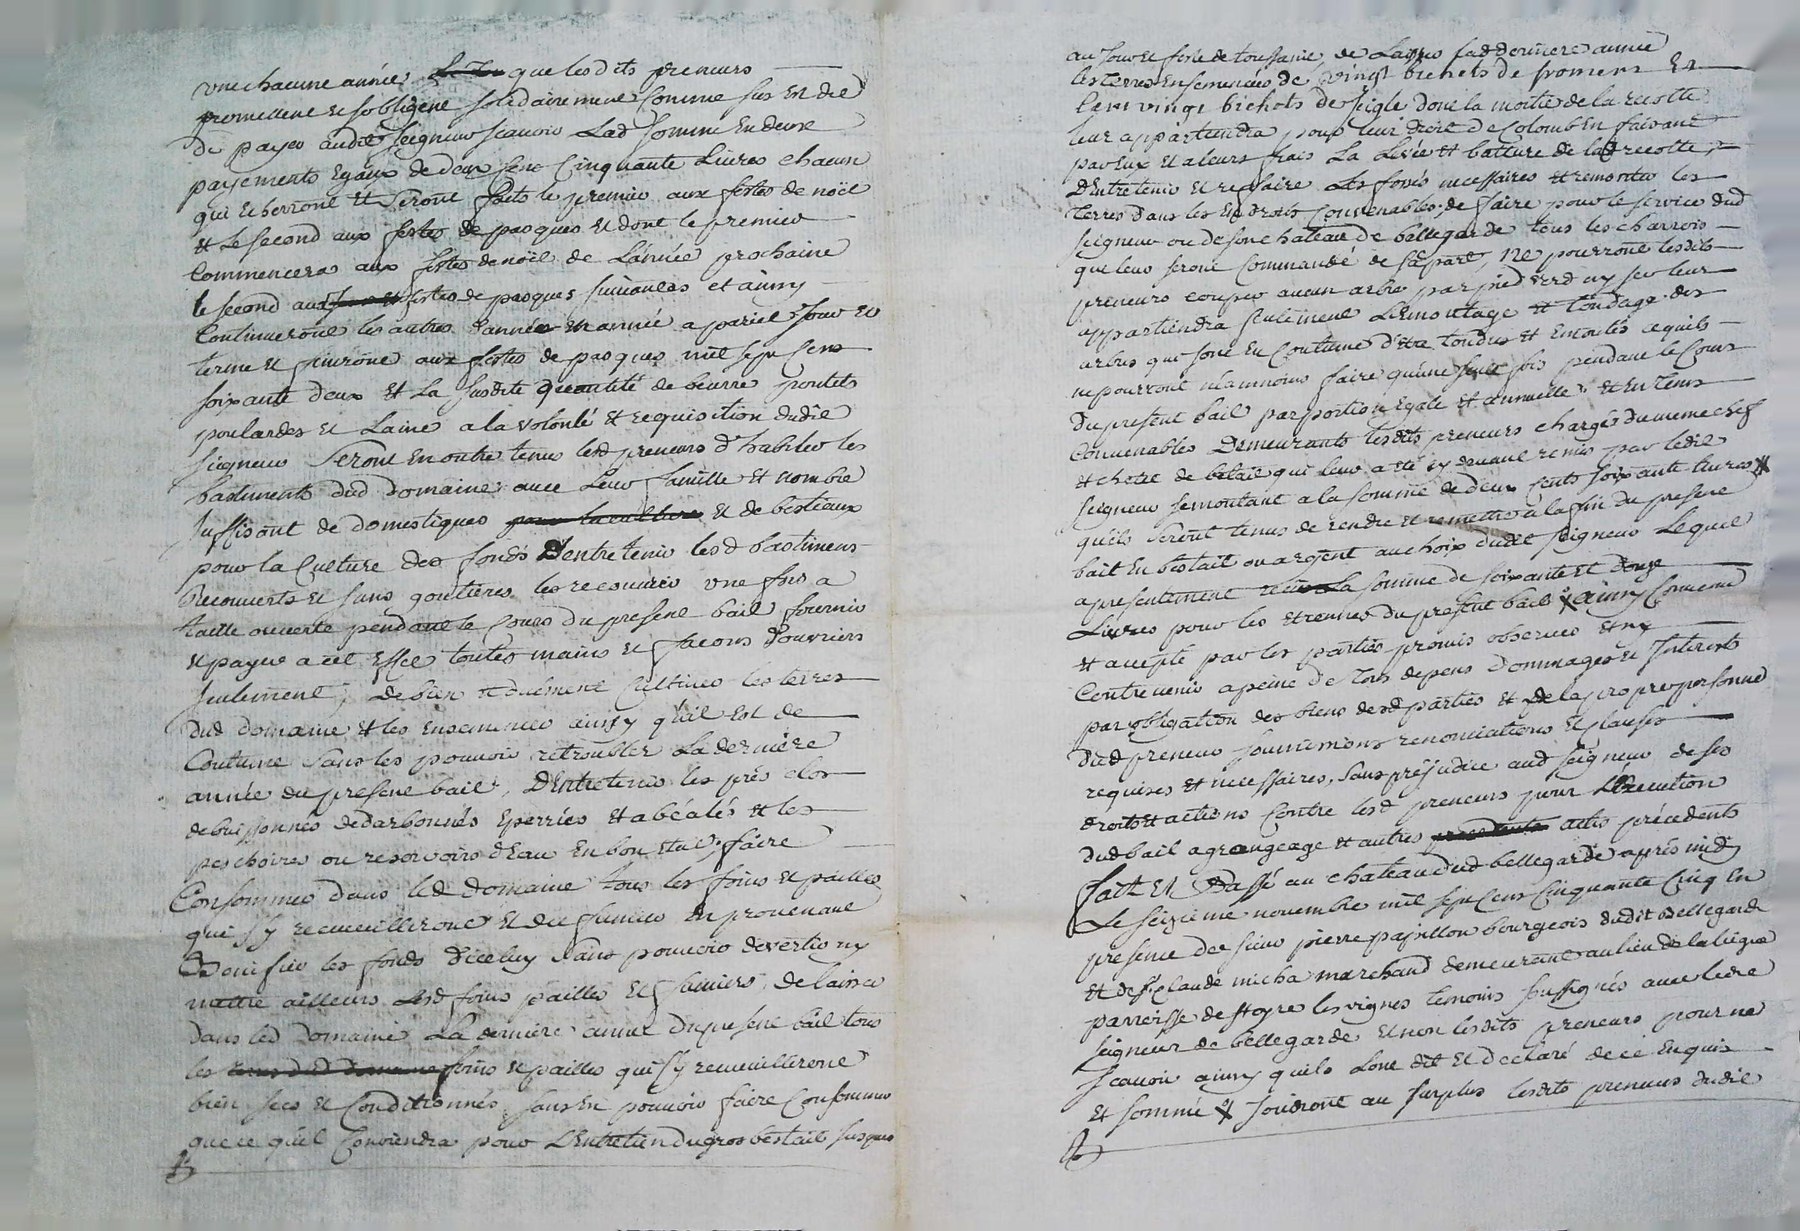 une chacune année que lesdits preneurs
promettent et s'obligent solidairement comme sus est dit
de payer audit seigneur scavoir lad somme en deux
payements egaux de deux sent cinquante livres chacun
qui echerront et seront faits le premier aux festes de noël
et le second aux festes de pasques et dont le premier
commencera aux festes de noël de l'année prochaine
le second aux festes de pasques suivantes et ainsy
continueront les autres d'année en année a pareil jour et
terme et finiront aux festes de pasques mil sept cens
soixante deux et la susdite quantité de beurre poulets
poulardes et laine a la volonté et requisition dudit
seigneur seront en outre tenus lesd preneurs d'habiter les
bastiments dud domaine avec leur famille et nombre
suffisant de domestiques et de bestiaux
pour la culture des fonds d'entretenir lesd bastimens
recouverts et sans goutières les recouvrir une fois a
taille ouverte pendant le cours du present bail fournir
et payer a cet effet toutes mains et facons d'ouvriers
seulement, de bien et duement cultiver les terres
dud domaine et les ensemencer ainsy qu'il est de
coutume sans les pouvoir retroubler la dernière
année du present bail, d'entretenir les prés clos
debuissonnés dedarbonnés eperriés et abéalés et les
peschoires ou reservoirs d'eau en bon etat, faire
consommer dans led domaine tous les foins et pailles
qui s'y recueilliront et du fumier en provenant
bonifier les fonds d'iceluy sans pouvoir divertir ny
mettre ailleurs lesd foins pailles et fumiers, de laisser
dans led domaine la dernière année du present bail tous
les foins et pailles qui s'y recueilliront
bien secs et conditionnés sans en pouvoir faire consommer
que ce qu'il conviendra pour l'entretien du gros bestail jusques
au jour et feste de toussaint, de laisser lad dernière année
les terres ensemencées de vingt bichets de froment et
cent vingt bichets de seigle dont la moitié de la recolte
leur appartiendra pour leur droit de colomb en faisant
par eux et a leurs frais la levée et batture de lad recolte,
d'entretenir et refaire les fossés necessaires et remonter les
terres dans les endroits convenables, de faire pour le service dud
seigneur ou de son chateau de bellegarde tous les charrois
que leur seront commandé de sa part, ne pourront lesdits
preneurs couper aucun arbre par pied verd ny sec leur
appartiendra seulement l'emontage et tondage des
arbres qui sont en coutume d'etre tondus et emontés ce quils
ne pourront neamnoins faire qu'une seule fois pendant le cours
du present bail par portion egale et annuelle et en tems
convenables demeurants lesdits preneurs chargés du meme chef
et chotel de betail qui leur a été cy devant remis par ledit
seigneur se montant a la somme de deux cents soixante livres
quils seront tenus de rendre et remettre a la fin du present
bail en bestail ou argent au choix dudit seigneur lequel
a presentement la somme de soixante et douze
livres pour les etrennes du present bail ainsy convenu
et accepté par les parties promis observer et ny
contrevenir a peine de tous depens dommages et interets
par obligation des biens desd parties et de la propre personne
dud preneur soumissions renonciations et clauses
requises et necessaires, sans préjudice aud seigneur de ses
droits et actions contre lesd preneurs pour l'execution
dud bail a grangeage et autres actes précédents
fait et passé au chateau dud bellegarde après midy
le seizieme novembre mil sept cens cinquante cinq en
presence de sieur pierre papillon bourgeois dudit bellegarde
et de sr claude micha marchand demeurant au lieu de la liegue
parroisse de st cyre les vignes temoins soussignés avec ledit
seigneur de bellegarde et non lesdits preneurs pour ne
scavoir ainsy quils l'ont dit et declaré de ce enquis
et sommé jouiront au surplus lesdits preneurs dudit